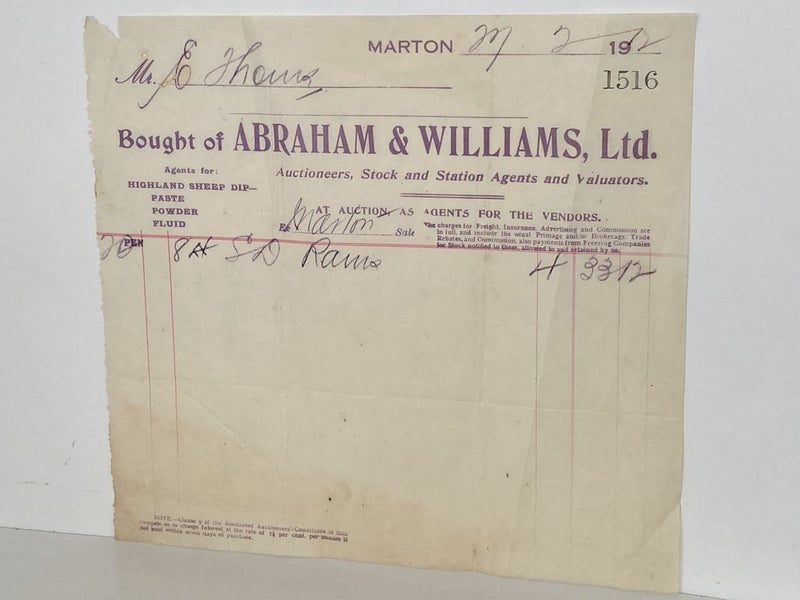 MARTON 2 1912
Mr. E Thoms
1516
Bought of ABRAHAM & WILLIAMS, Ltd.
Agents for:
HIGHLAND SHEEP DIP—
PASTE
POWDER
FLUID
Auctioneers, Stock and Station Agents and Valuators.
AT AUCTION, AS AGENTS FOR THE VENDORS.
Ex Marton Sale
The charges for Freight, Insurance, Advertising and Commission are
in full, and include the usual Primage and/or Brokerage. Trade
Rebates, and Commission, also payments from Freezing Companies
for Stock notified to them, allowed to and retained by us.
PEN
8 SD Rams 4 33 12
NOTE.—Clause 9 of the Associated Auctioneers' Conditions of Sale
compels us to charge Interest at the rate of 7½ per cent. per annum if
not paid within seven days of purchase.